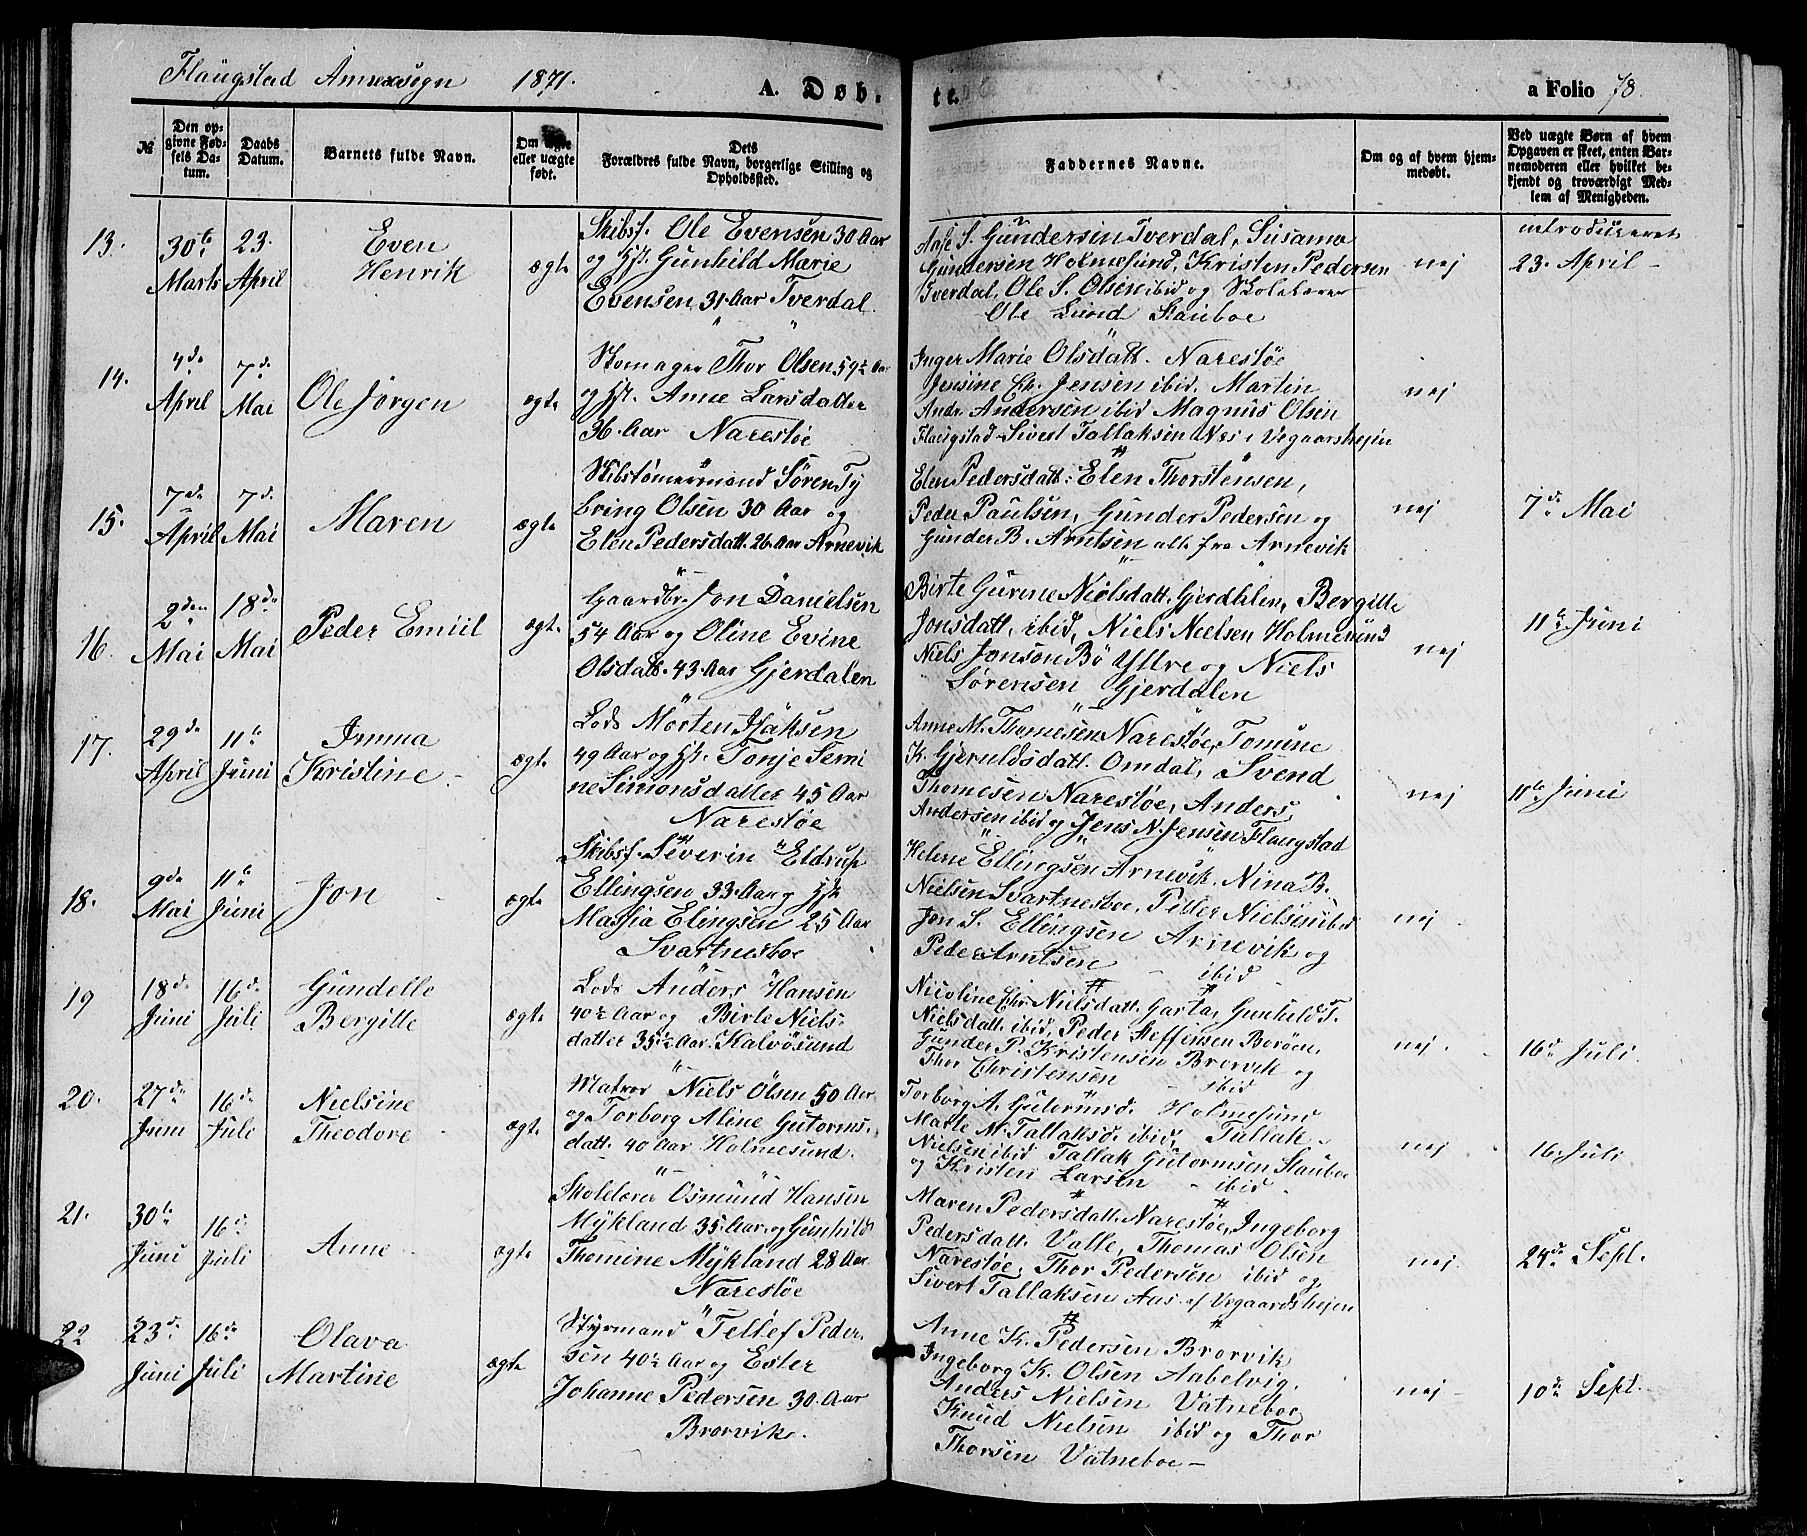 Flaugstad Annexsogn 1871. A. Døb- te. a Folio 78.
№
Den op-
givne Fød-
sels Da-
tum.
Daabs
Datum.
Barnets fulde Navn.
Om ægte
eller uægte
født.
Dets
Forældres fulde Navn, borgerlige Stilling og
Opholdssted.
Faddernes Navne.
Om og af hvem hjem-
medøbt.
Ved uægte Børn af hvem
Opgaven er skeet, enten Bar-
nemoderen eller hvilket be-
kjendt og troværdigt Med-
lem af Menigheden.
13.
30te
Marts
23.
April
Even
Henrik
ægte
Skibsf. Ole Evensen 30 Aar
og Hst. Gunhild Marie
Evensen 31 Aar Tverdal.
Aase S. Gundersen Tverdal, Susanna
Gundersen Holmesund, Kristen Pedersen
Tverdal, Ole S. Olsen ibid og Skolelærer
Ole Lund Stauboe
nej
introduceret
23. April -
14.
4de
April
7de
Mai
Ole Jørgen
ægte
Skomager Thor Olsen 59½ Aar
og Hst. Anne Larsdatter
36 Aar Narestøe
Inger Marie Olsdatt. Narestøe
Jensine Ch. Jensen ibid. Martin
Andr. Andersen ibid Magnus Olsen
Flaugstad Sivert Tallaksen Næs i Vegaarshejen
nej
15.
7de
April
7de
Mai
Maren
ægte
Skibstømmermand Søren Ty
bring Olsen 30 Aar og
Elen Pedersdatt. 26 Aar Arnevik
Elen Pedersdatt. Elen Thorstensen,
Peder Paulsen, Gunder Pedersen og
Gunder B. Arntsen alle fra Arnevik
nej
7de Mai
16.
2den
Mai
18de
Mai
Peder Emiil
ægte
Gaardbr. Jon Danielsen
54 Aar og Oline Evine
Olsdatt. 43 Aar Gjerdalen
Birte Gurine Nielsdatt. Gjerdalen, Bergitte
Jonsdatt. ibid, Niels Nielsen Holmesund
Niels Jonson Bö Yttre og Niels
Sørensen Gjerdalen
nej
11te Juni
17.
29de
April
11te
Juni
Imma
Kristine
ægte
Lods Morten Isaksen
49 Aar og Hst. Tonje Semi
ne Simonsdatter 45 Aar
Narestøe
Anne M. Thomesen Narestøe, Tomine
K. Gjeruldsdatt. Omdal, Svend
Thomesen Narestøe, Anders
Andersen ibid og Jens N. Jensen Flaugstad
nej
11te Juni
18.
9de
Mai
11te
Juni
Jon
ægte
Skibsf. Severin Eldrup
Ellingsen 33 Aar og Hst
Masja Elingsen 25 Aar
Svartnesboe
Helene Ellingsen Arnevik. Nina B.
Nielsen Svartnesboe, Peter Nielsen ibid
Jon S. Ellingsen Arnevik og
Peder Arntsen ibid
nej
19
18de
Juni
16de
Juli
Gundelle
Bergitte
ægte
Lods Anders Hansen
40½ Aar og Birte Niels-
datter 35½ Aar Kalvösund
Nicoline Chr. Nielsdatt. Garta, Gunhild T.
Nielsdatt ibid, Peder Steffensen Borøen,
Gunder P. Kristensen Brorvik og
Thor Christensen ibid
nej.
16de Juli.
20.
27de
Juni
16de
Juli
Nielsine
Theodore
ægte
Matros Niels Olsen 50 Aar
og Torborg Aline Gutorms-
datt. 40 Aar Holmesund.
Torborg A. Gutormsd. Holmesund
Marte M. Tallaksd. ibid, Tallak
Nielsen ibid Tallak Gutormsen Stauboe
og Kristen Larsen ibid
nej
16. Juli
21.
30te
Juni
16de
Juli
Anne
ægte
Skolelærer Osmund Hansen
Mykland 35 Aar og Gunhild
Thomine Mykland 28 Aar
Narestøe
Maren Pedersdatt. Narestøe, Ingeborg
Pedersdatt. Valle, Thomas Olsen
Narestøe, Thor Pedersen ibid og
Sivert Tallaksen Aas af Vegaardshejen
nej.
24de Sept.
22
23de
Juni
16de
Juli
Olava
Martine
ægte
Styrmand Tellef Peder-
sen 40½ Aar og Ester
Johanne Pedersen 30 Aar
Brorvik.
Anne K. Pedersen Brorvik
Ingeborg K. Olsen Aabelvig,
Anders Nielsen Vatneboe
Knud Nielsen ibid og Thor
Thorsen Vatneboe -
nej -
10de Sept.